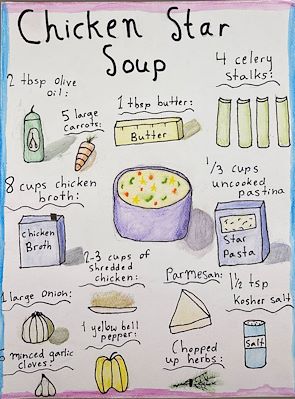 Chicken Star
Soup
2 tbsp olive
oil:
5 large
carrots:
1 tbsp butter:
Butter
4 celery
stalks:
8 cups chicken
broth:
Chicken
Broth
1/3 cups
uncooked
pastina
Star
Pasta
2-3 cups of
shredded
chicken:
Parmesan:
1 1/2 tsp
Kosher salt
Salt
1 large onion:
1 yellow bell
pepper:
minced garlic
cloves:
Chopped
up herbs: